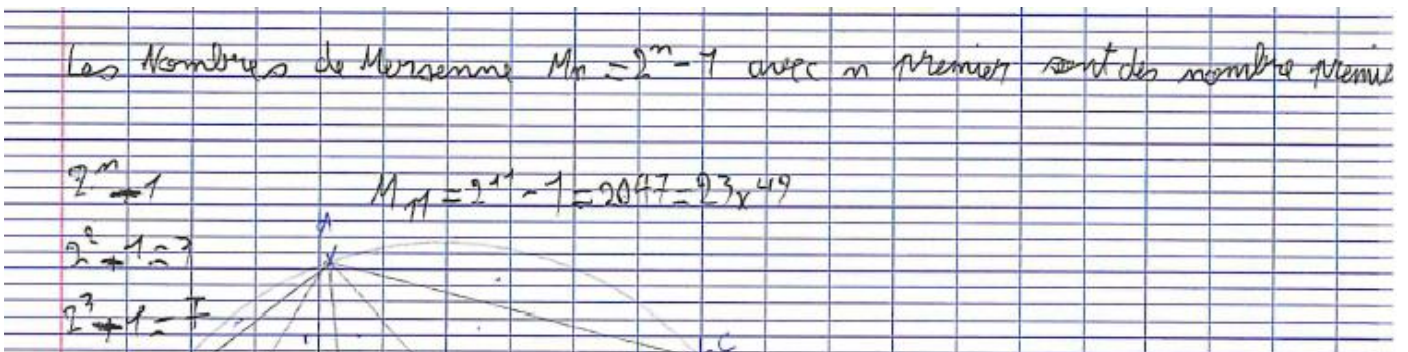 Les Nombres de Mersenne Mn = 2^n - 1 avec n premier sont des nombre premie
2^n - 1
M_11 = 2^11 - 1 = 2047 = 23 x 49
2^2 - 1 = 3
A
2^3 - 1 = 7
C